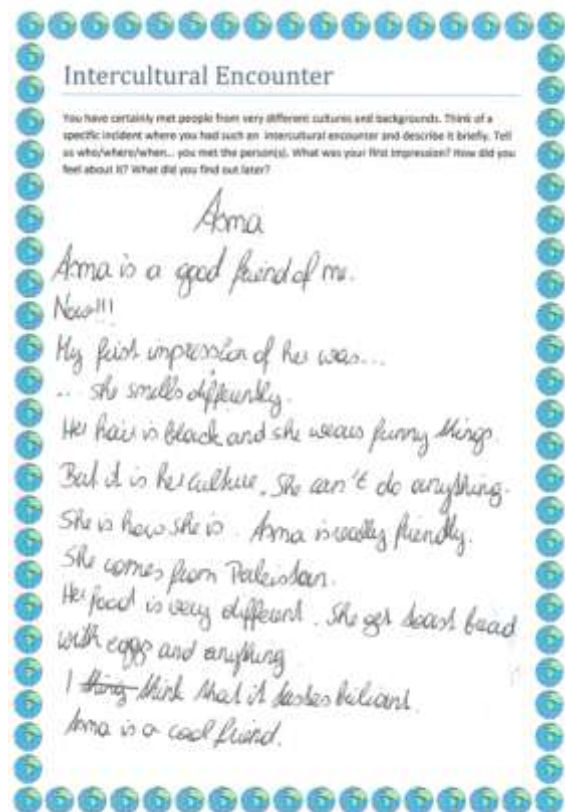 Intercultural Encounter
You have certainly met people from very different cultures and backgrounds. Think of a
specific incident where you had such an intercultural encounter and describe it briefly. Tell
us who/where/when... you met the person(s). What was your first impression? How did you
feel about it? What did you find out later?
Asma
Asma is a good friend of me.
Now!!!
My first impression of her was...
... she smells differently.
Her hair is black and she wears funny things.
But it is her culture. She can't do anything.
She is how she is. Asma is really friendly.
She comes from Pakistan.
Her food is very different. She get toast bread
with eggs and anything
I thing think that it tastes briliant.
Asma is a cool friend.